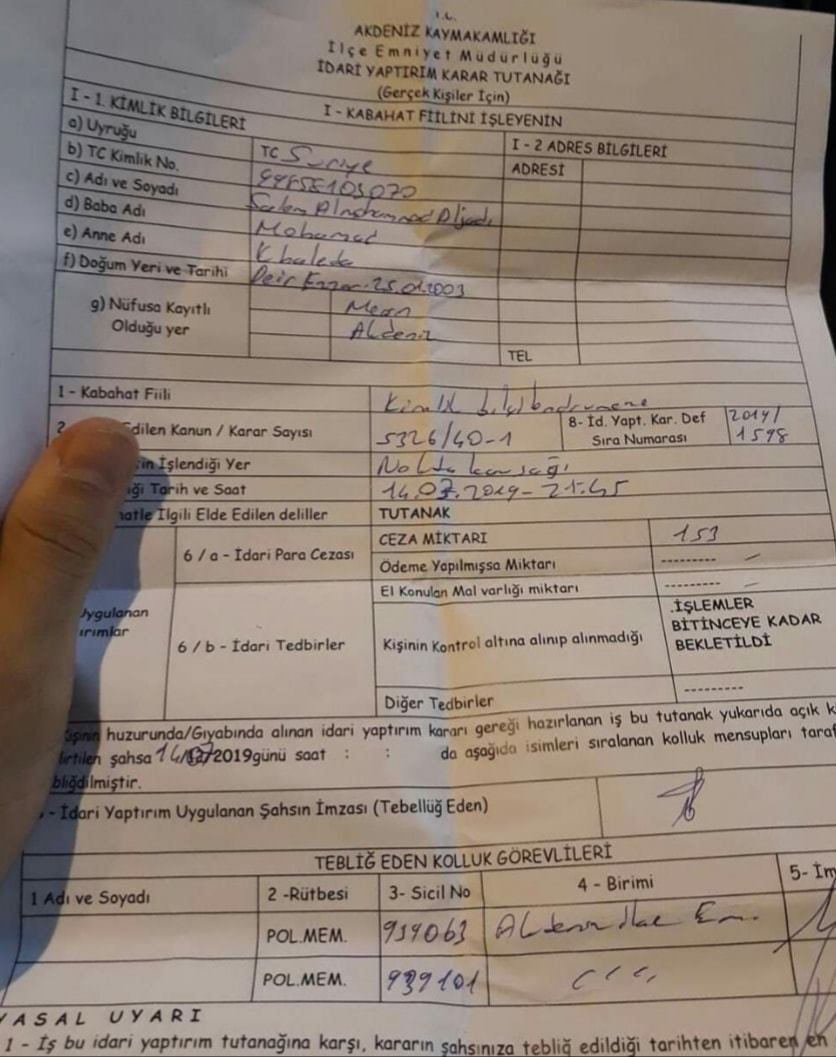 T.C.
AKDENİZ KAYMAKAMLIĞI
İlçe Emniyet Müdürlüğü
İDARİ YAPTIRIM KARAR TUTANAĞI
(Gerçek Kişiler İçin)
I - KABAHAT FİİLİNİ İŞLEYENİN
I - 1. KİMLİK BİLGİLERİ
I - 2 ADRES BİLGİLERİ
a) Uyruğu TC Suriye ADRESİ
b) TC Kimlik No.
c) Adı ve Soyadı
d) Baba Adı Mohamad
e) Anne Adı Khaleda
f) Doğum Yeri ve Tarihi 25.01.2003
g) Nüfusa Kayıtlı Olduğu yer
Akdeniz
TEL
1 - Kabahat Fiili Kimlik
2 Edilen Kanun / Karar Sayısı 5326/40-1 8- İd. Yapt. Kar. Def Sıra Numarası 2019/ 1598
in İşlendiği Yer Nokta
ği Tarih ve Saat 14.07.2019 - 21:45
hatle Ilgili Elde Edilen deliller TUTANAK
6 / a - İdari Para Cezası CEZA MİKTARI 153
Ödeme Yapılmışsa Miktarı ---------
Uygulanan
ırımlar
6 / b - İdari Tedbirler
El Konulan Mal varlığı miktarı ---------
Kişinin Kontrol altına alınıp alınmadığı .İŞLEMLER BİTİNCEYE KADAR BEKLETİLDİ
Diğer Tedbirler ---------
işinin huzurunda/Gıyabında alınan idari yaptırım kararı gereği hazırlanan iş bu tutanak yukarıda açık k
irtilen şahsa 14/07/2019günü saat : : da aşağıda isimleri sıralanan kolluk mensupları taraf
bliğdilmiştir.
- İdari Yaptırım Uygulanan Şahsın İmzası (Tebellüğ Eden)
TEBLİĞ EDEN KOLLUK GÖREVLİLERİ
1 Adı ve Soyadı 2 -Rütbesi 3- Sicil No 4 - Birimi 5- İm
POL.MEM. Akdeniz İlçe Em.
POL.MEM. 939101
YASAL UYARI
1 - İş bu idari yaptırım tutanağına karşı, kararın şahsınıza tebliğ edildiği tarihten itibaren en